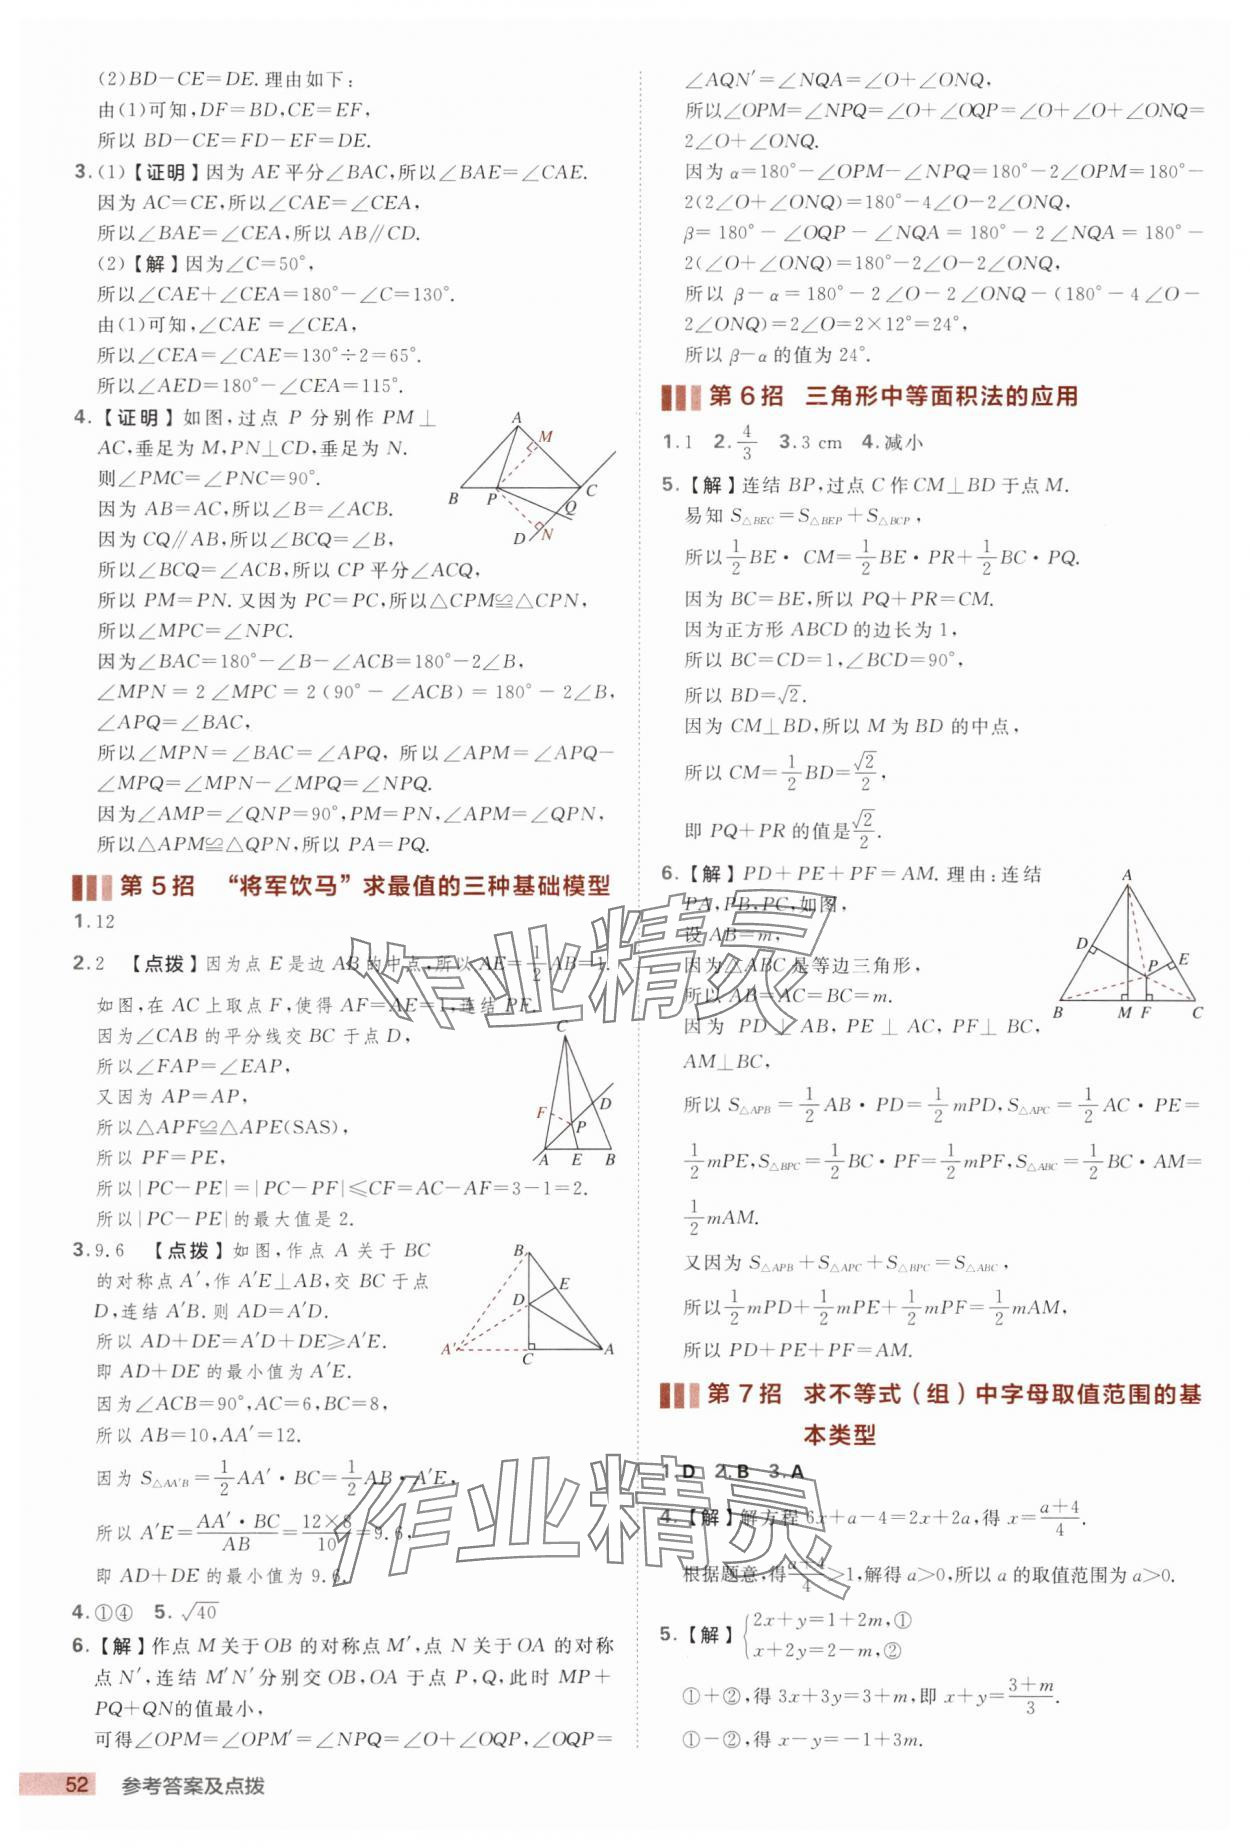 (2)BD－CE＝DE.理由如下：
由(1)可知，DF＝BD，CE＝EF，
所以 BD－CE＝FD－EF＝DE.
3.(1)【证明】因为 AE 平分∠BAC，所以∠BAE＝∠CAE.
因为 AC＝CE，所以∠CAE＝∠CEA，
所以∠BAE＝∠CEA，所以 AB∥CD.
(2)【解】因为∠C＝50°，
所以∠CAE＋∠CEA＝180°－∠C＝130°.
由(1)可知，∠CAE＝∠CEA，
所以∠CEA＝∠CAE＝130°÷2＝65°.
所以∠AED＝180°－∠CEA＝115°.
4.【证明】如图，过点 P 分别作 PM⊥
AC，垂足为 M，PN⊥CD，垂足为 N.
则∠PMC＝∠PNC＝90°.
因为 AB＝AC，所以∠B＝∠ACB.
因为 CQ∥AB，所以∠BCQ＝∠B，
所以∠BCQ＝∠ACB，所以 CP 平分∠ACQ，
所以 PM＝PN.又因为 PC＝PC，所以△CPM≌△CPN，
所以∠MPC＝∠NPC.
因为∠BAC＝180°－∠B－∠ACB＝180°－2∠B，
∠MPN＝2∠MPC＝2(90°－∠ACB)＝180°－2∠B，
∠APQ＝∠BAC，
所以∠MPN＝∠BAC＝∠APQ，所以∠APM＝∠APQ－
∠MPQ＝∠MPN－∠MPQ＝∠NPQ.
因为∠AMP＝∠QNP＝90°，PM＝PN，∠APM＝∠QPN，
所以△APM≌△QPN，所以 PA＝PQ.
A
M
B
P
C
Q
D
N
第5招 “将军饮马”求最值的三种基础模型
1.12
2.2 【点拨】因为点 E 是边 AB 的中点，所以 AE＝1/2 AB＝1.
如图，在 AC 上取点 F，使得 AF＝AE＝1，连结 PF.
因为∠CAB 的平分线交 BC 于点 D，
所以∠FAP＝∠EAP，
又因为 AP＝AP，
所以△APF≌△APE(SAS)，
所以 PF＝PE，
所以|PC－PE|＝|PC－PF|≤CF＝AC－AF＝3－1＝2.
所以|PC－PE|的最大值是 2.
C
D
F
P
A E B
3.9.6 【点拨】如图，作点 A 关于 BC
的对称点 A′，作 A′E⊥AB，交 BC 于点
D，连结 A′B.则 AD＝A′D.
所以 AD＋DE＝A′D＋DE≥A′E.
即 AD＋DE 的最小值为 A′E.
因为∠ACB＝90°，AC＝6，BC＝8，
所以 AB＝10，AA′＝12.
因为 S△AA′B＝1/2 AA′·BC＝1/2 AB·A′E，
所以 A′E＝AA′·BC/AB＝12×8/10＝9.6，
即 AD＋DE 的最小值为 9.6.
B
E
D
A′
C
A
4.①④ 5.√40
6.【解】作点 M 关于 OB 的对称点 M′，点 N 关于 OA 的对称
点 N′，连结 M′N′分别交 OB，OA 于点 P，Q，此时 MP＋
PQ＋QN的值最小，
可得∠OPM＝∠OPM′＝∠NPQ＝∠O＋∠OQP，∠OQP＝
∠AQN′＝∠NQA＝∠O＋∠ONQ，
所以∠OPM＝∠NPQ＝∠O＋∠OQP＝∠O＋∠O＋∠ONQ＝
2∠O＋∠ONQ.
因为 α＝180°－∠OPM－∠NPQ＝180°－2∠OPM＝180°－
2(2∠O＋∠ONQ)＝180°－4∠O－2∠ONQ，
β＝180°－∠OQP－∠NQA＝180°－2∠NQA＝180°－
2(∠O＋∠ONQ)＝180°－2∠O－2∠ONQ，
所以 β－α＝180°－2∠O－2∠ONQ－(180°－4∠O－
2∠ONQ)＝2∠O＝2×12°＝24°，
所以 β－α 的值为 24°.
第6招 三角形中等面积法的应用
1.1 2.4/3 3.3 cm 4.减小
5.【解】连结 BP，过点 C 作 CM⊥BD 于点 M.
易知 S△BEC＝S△BEP＋S△BCP，
所以1/2 BE·CM＝1/2 BE·PR＋1/2 BC·PQ.
因为 BC＝BE，所以 PQ＋PR＝CM.
因为正方形 ABCD 的边长为 1，
所以 BC＝CD＝1，∠BCD＝90°，
所以 BD＝√2.
因为 CM⊥BD，所以 M 为 BD 的中点，
所以 CM＝1/2 BD＝√2/2，
即 PQ＋PR 的值是√2/2.
6.【解】PD＋PE＋PF＝AM.理由：连结
PA，PB，PC，如图，
设 AB＝m，
因为△ABC 是等边三角形，
所以 AB＝AC＝BC＝m.
因为 PD⊥AB，PE⊥AC，PF⊥BC，
AM⊥BC，
所以 S△APB＝1/2 AB·PD＝1/2 mPD，S△APC＝1/2 AC·PE＝
1/2 mPE，S△BPC＝1/2 BC·PF＝1/2 mPF，S△ABC＝1/2 BC·AM＝
1/2 mAM.
又因为 S△APB＋S△APC＋S△BPC＝S△ABC，
所以1/2 mPD＋1/2 mPE＋1/2 mPF＝1/2 mAM，
所以 PD＋PE＋PF＝AM.
A
D
P E
B M F C
第7招 求不等式（组）中字母取值范围的基
本类型
1.D 2.B 3.A
4.【解】解方程 6x＋a－4＝2x＋2a，得 x＝(a＋4)/4.
根据题意，得(a＋4)/4＞1，解得 a＞0，所以 a 的取值范围为 a＞0.
5.【解】{2x＋y＝1＋2m，①
x＋2y＝2－m，②
①＋②，得 3x＋3y＝3＋m，即 x＋y＝(3＋m)/3.
①－②，得 x－y＝－1＋3m.
作业精灵
作业精灵
52 参考答案及点拨